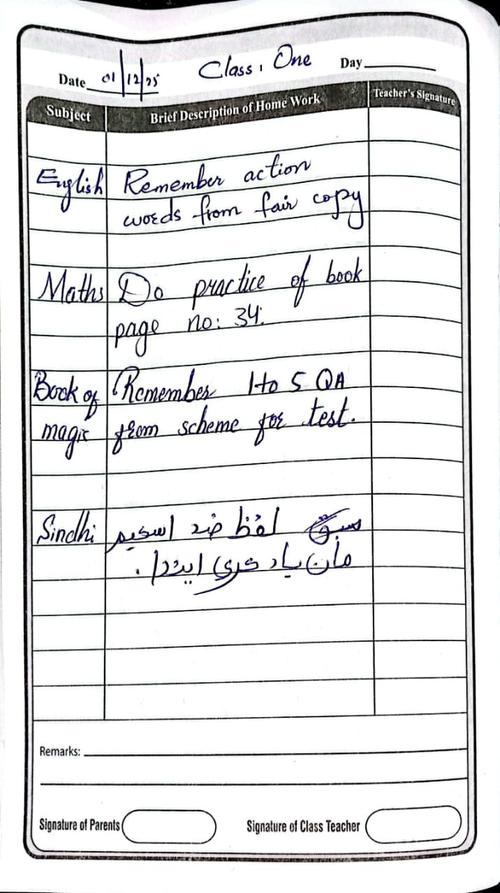 Date 01/12/25 Class: One Day
Subject Brief Description of Home Work Teacher's Signature
English Remember action
words from fair copy
Maths Do practice of book
page no: 34.
Book of Remember 1 to 5 QA
magic from scheme for test.
Sindhi لفظ ضد اسڪيم
مان ياد ڪري ايندا.
Remarks:
Signature of Parents Signature of Class Teacher